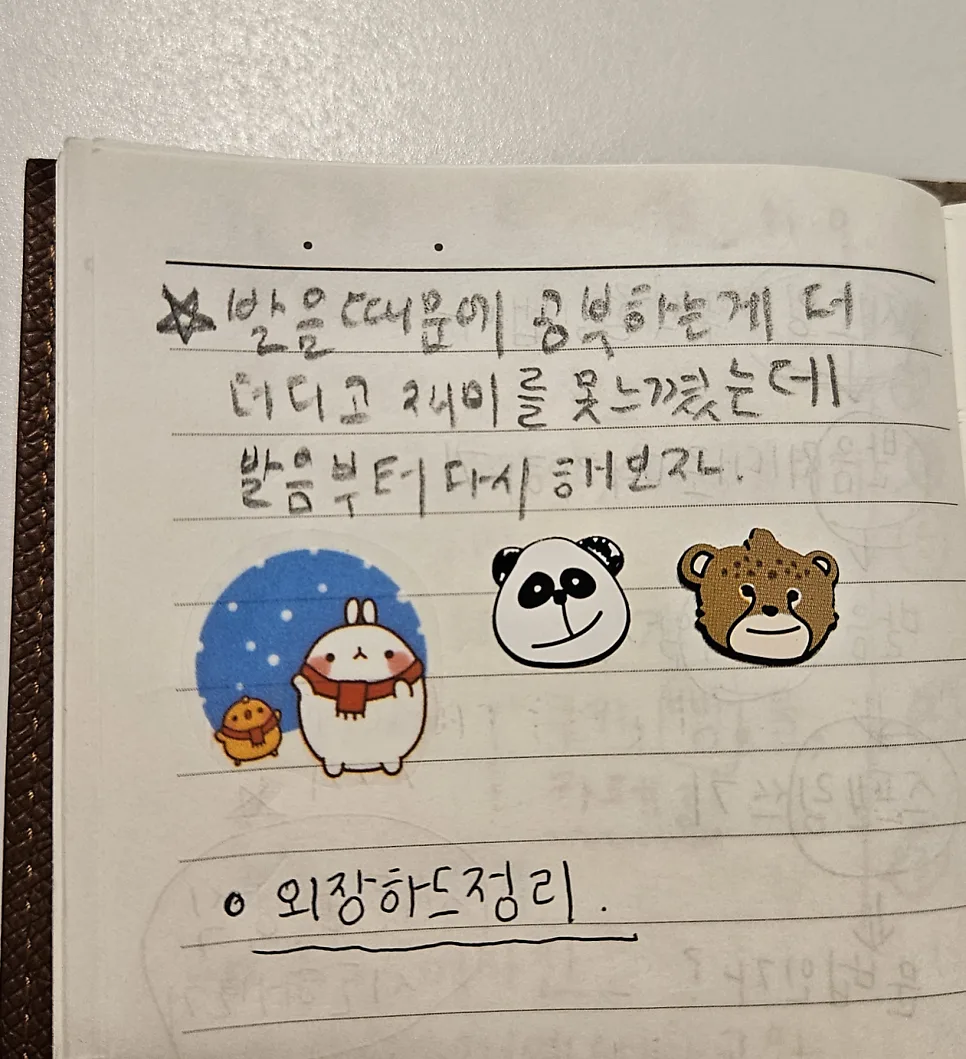 ★ 발음 때문에 공부하는게 더
더디고 재미를 못느꼈는데
발음부터 다시 해보자.
외장하드정리.